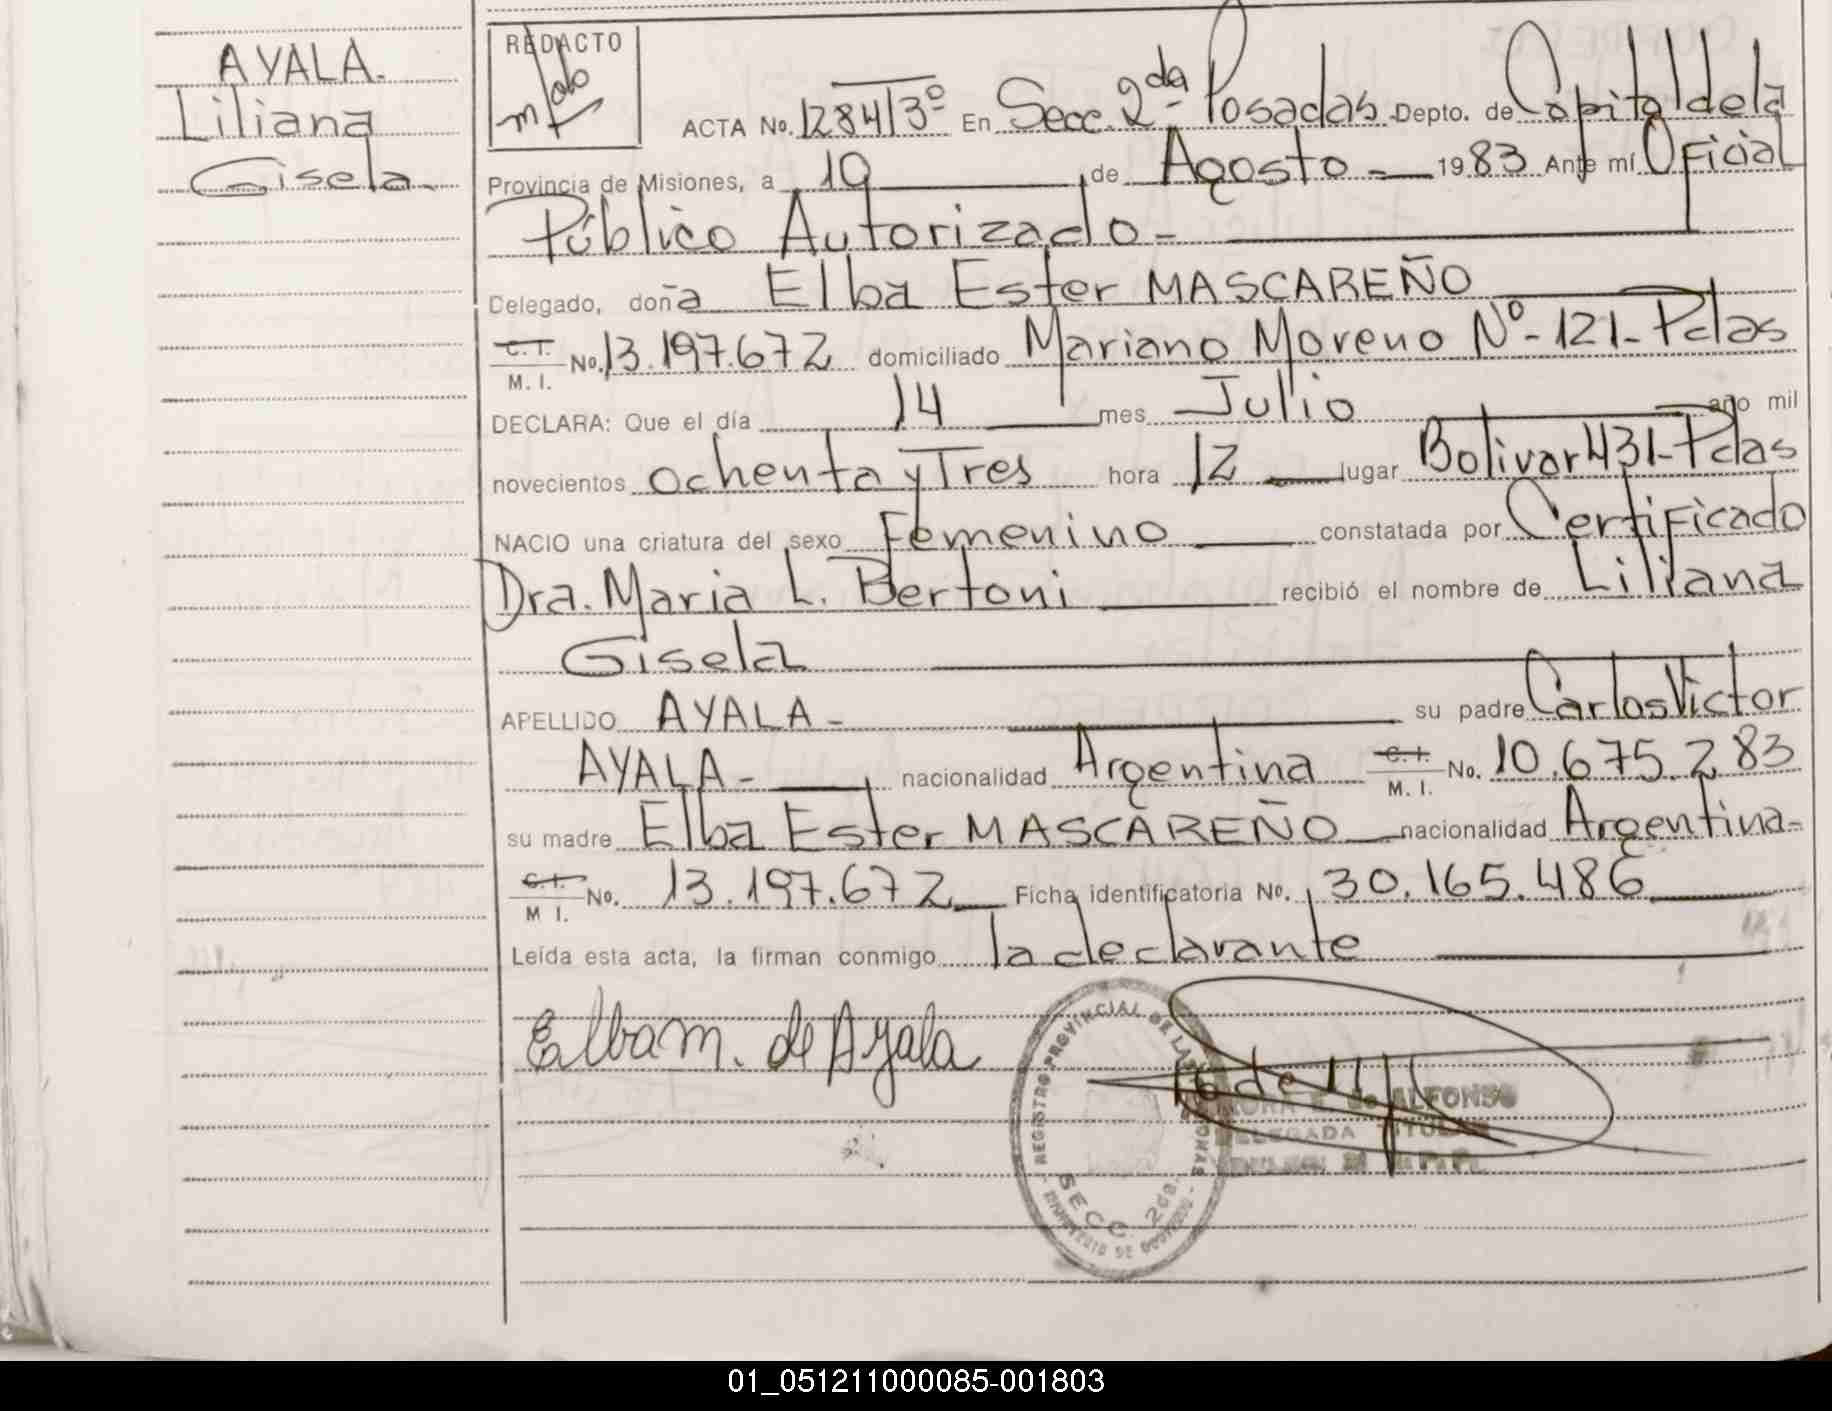 AYALA.
Liliana
Gisela.
REDACTO
ACTA No. 1284/3º En Secc. 2da. Posadas Depto. de Capital de la
Provincia de Misiones, a 19 de Agosto - 1983 Ante mí Oficial
Público Autorizado -
Delegado, doña Elba Ester MASCAREÑO
C. I. / M. I. No. 13.197.672 domiciliado Mariano Moreno Nº - 121 - Pdas
DECLARA: Que el día 14 mes Julio año mil
novecientos ochenta y Tres hora 12 lugar Bolivar 431 - Pdas
NACIO una criatura del sexo Femenino constatada por Certificado
Dra. Maria L. Bertoni recibió el nombre de Liliana
Gisela
APELLIDO AYALA - su padre Carlos Victor
AYALA - nacionalidad Argentina C. I. / M. I. No. 10.675.283
su madre Elba Ester MASCAREÑO nacionalidad Argentina -
C. I. / M I. No. 13.197.672 Ficha identificatoria No. 30.165.486
Leída esta acta, la firman conmigo la declarante
Elba m. de Ayala
REGISTRO PROVINCIAL DE LAS PERSONAS
SECC. 2da.
MINISTERIO DE GOBIERNO
de ALFONSO
DELEGADA TITULAR
01_051211000085-001803